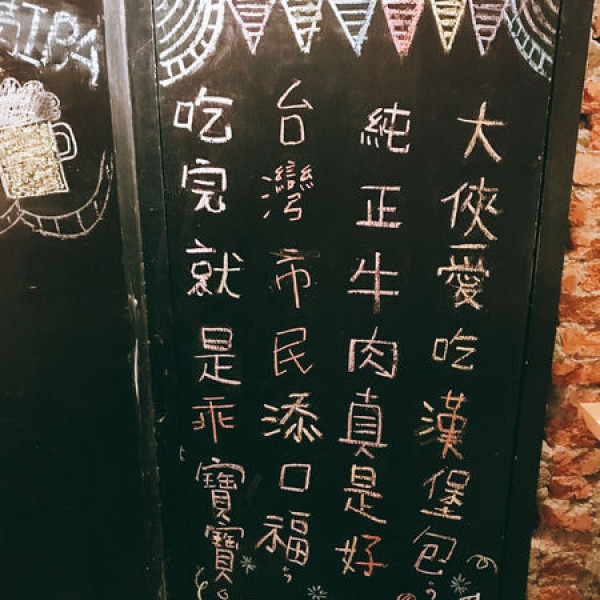 大俠愛吃漢堡包，
純正牛肉真是好
台灣市民添口福，
吃完就是乖寶寶。